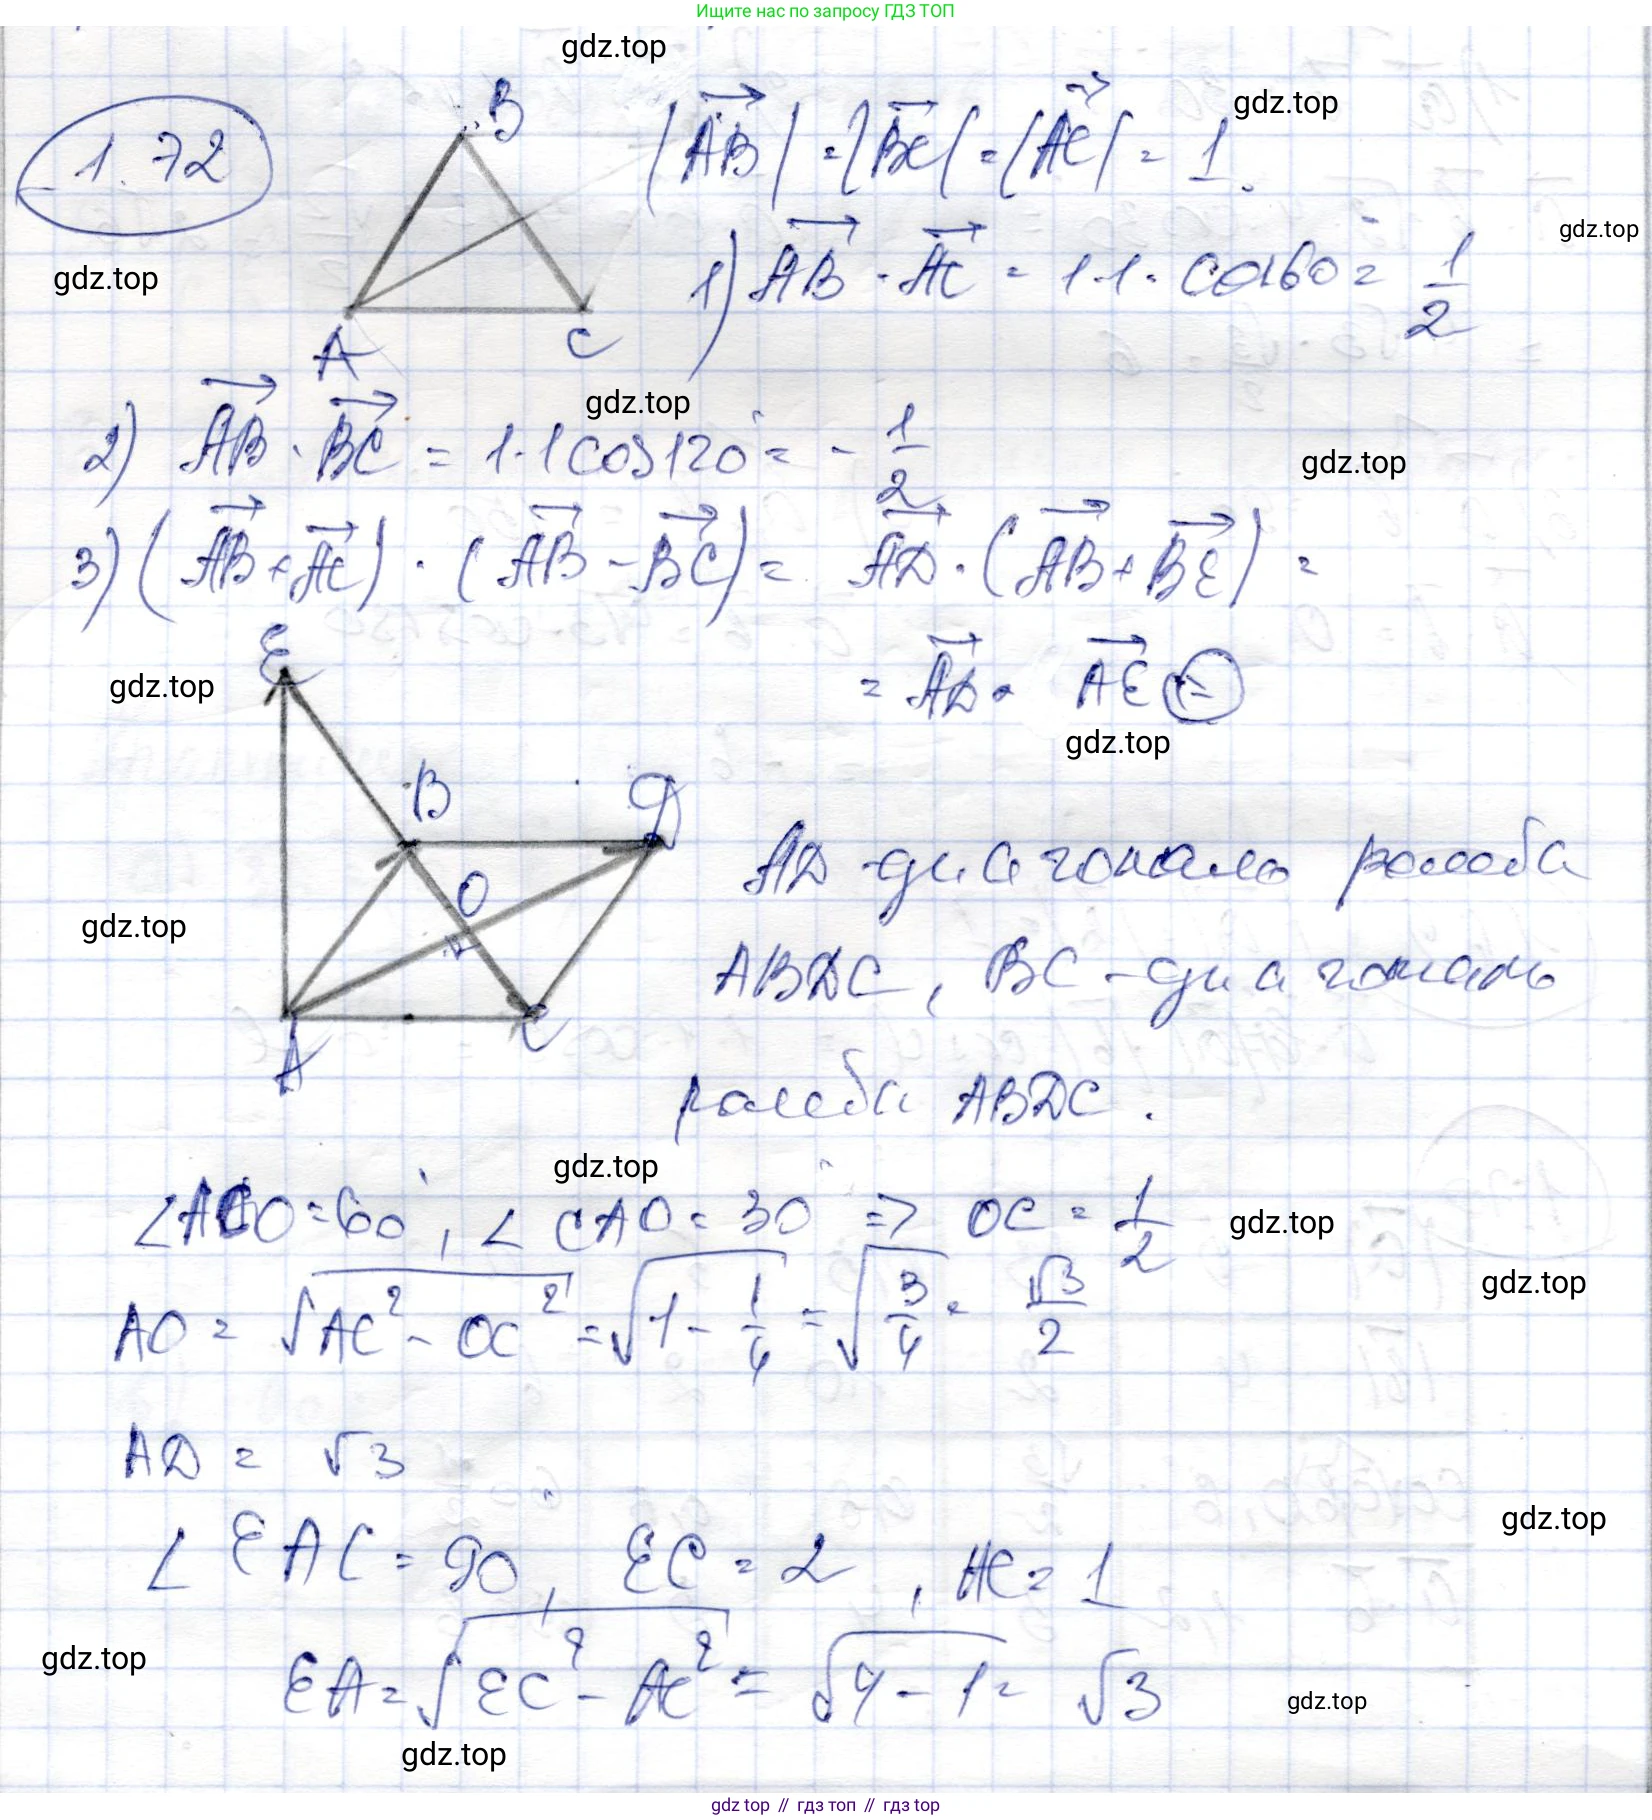 Ищите нас по запросу ГДЗ ТОП
gdz.top
1.72
B
A
C
|AB| = |BC| = |AC| = 1.
gdz.top
gdz.top
gdz.top
1) AB · AC = 1·1· cos60° = 1/2
gdz.top
2) AB · BC = 1·1 cos120° = - 1/2
gdz.top
3) (AB + AC) · (AB - BC) = AD · (AB + BE) =
= AD · AE =
gdz.top
gdz.top
E
B
D
O
A
C
gdz.top
AD - диагональ ромба
ABDC, BC - диагональ
ромба ABDC.
gdz.top
∠ACO = 60°, ∠CAO = 30° => OC = 1/2
gdz.top
gdz.top
AO = √AC² - OC² = √1 - 1/4 = √3/4 = √3/2
AD = √3
gdz.top
∠EAC = 90°, EC = 2, AC = 1
gdz.top
EA = √EC² - AC² = √4 - 1 = √3
gdz.top
gdz.top
gdz top // гдз топ // gdz top